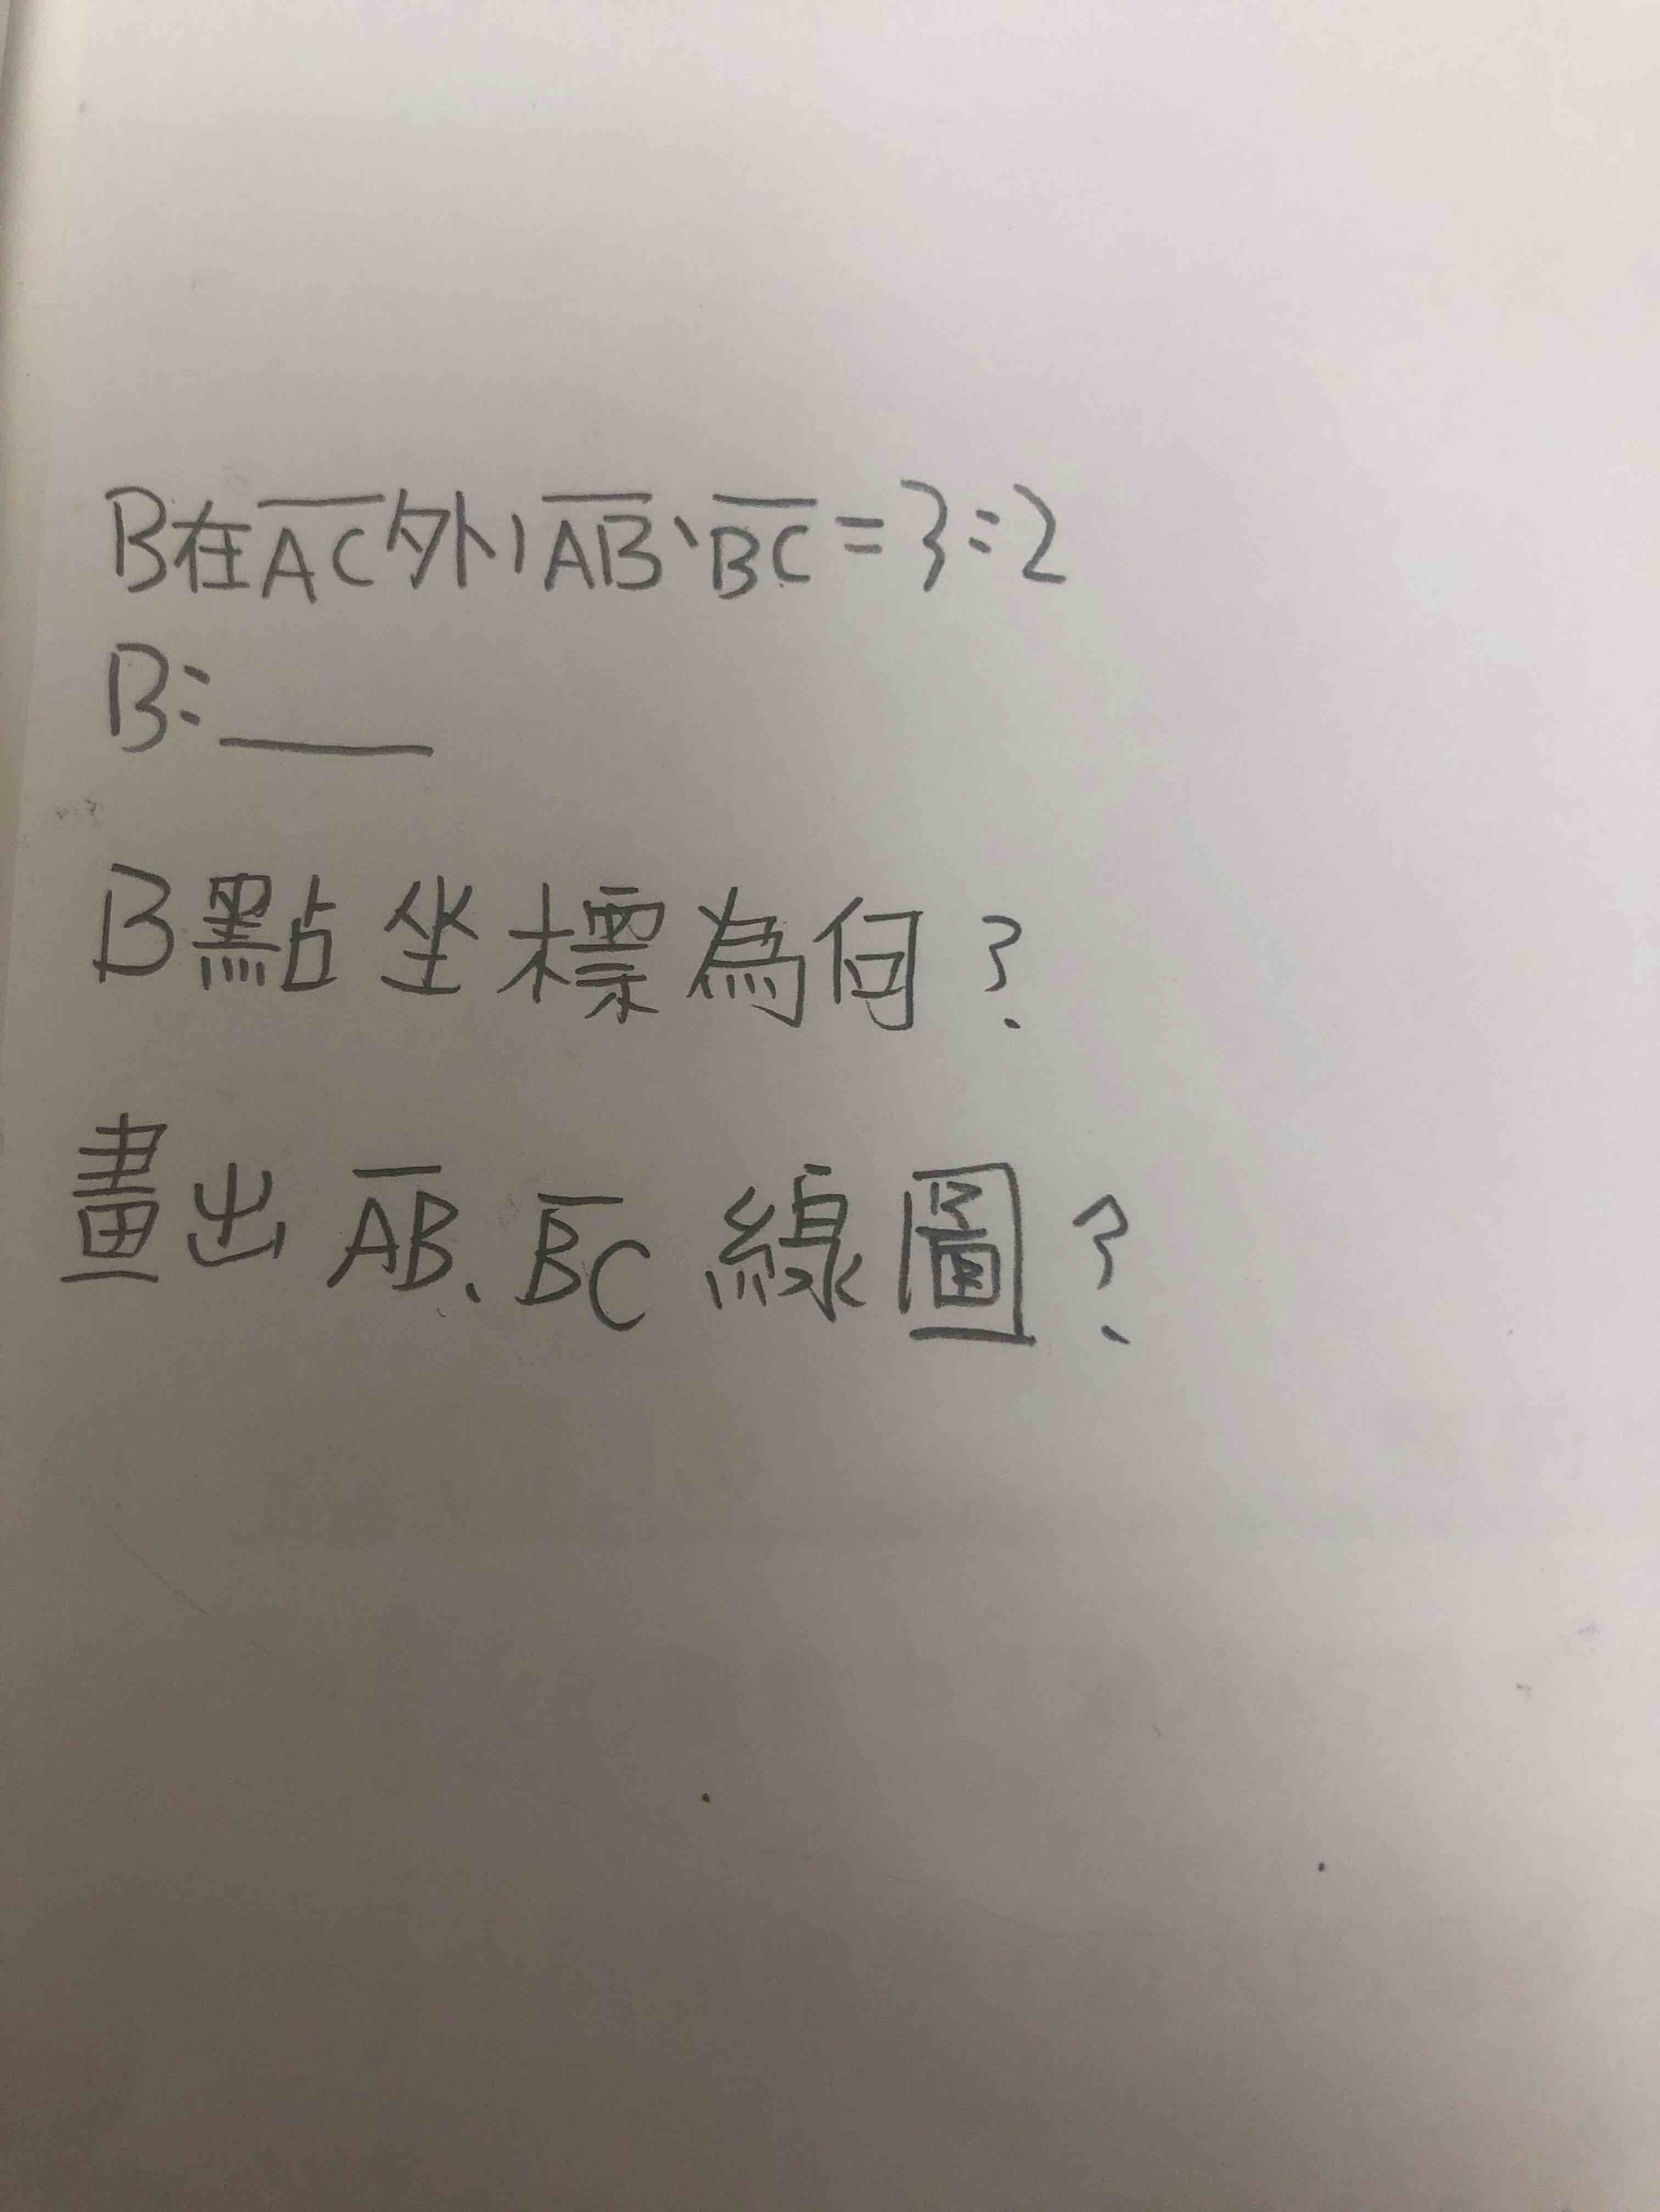 B在A̅C̅外,A̅B̅、B̅C̅=3:2
B:____
B點坐標為何?
畫出A̅B̅、B̅C̅線圖?